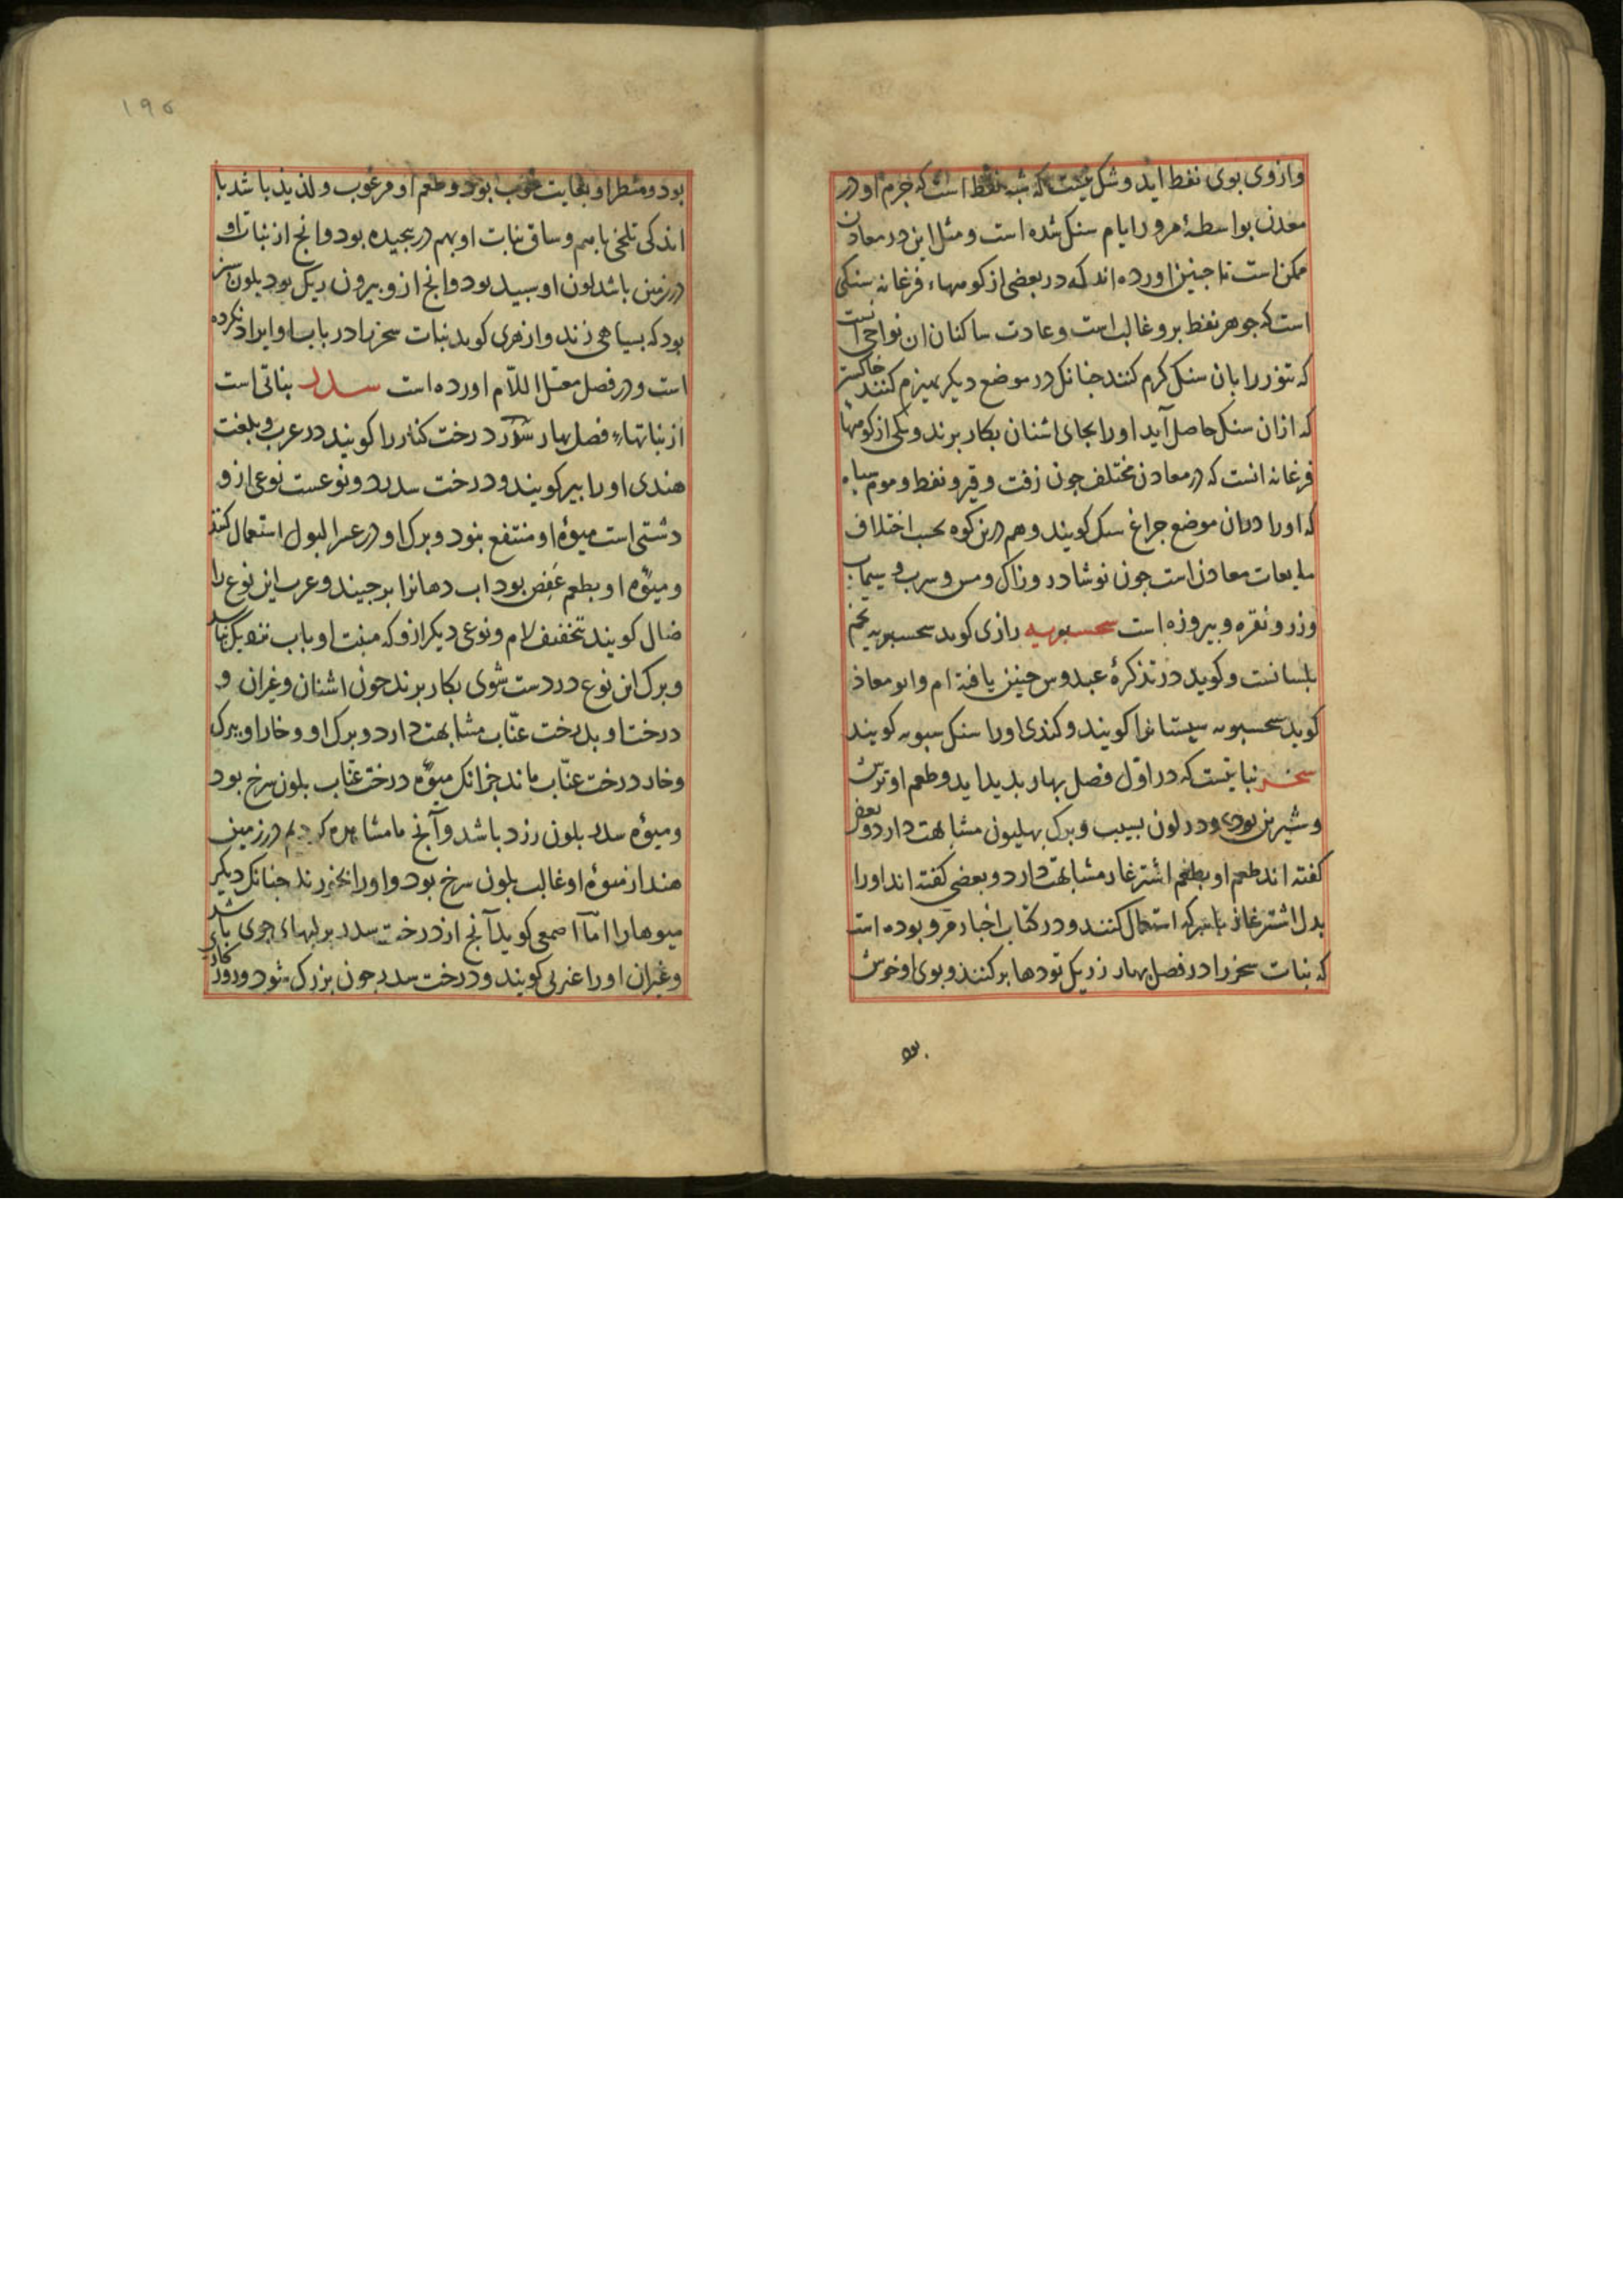 وازوی بوی نفط اید و شک نیست که شبه نفط است که جرم او در
معدن بواسطهٔ مرور ایام سنک شده است و مثل این در معادن
ممکن است تا جنین اورده اند که در بعضی از کوههاء فرغانه سنکی
است که جوهر نفط برو غالب است و عادت ساکنان ان نواحی انست
که تنور را بان سنک کرم کنند جنانک در موضع دیکر بهیزم کنند خاکستر
که ازان سنک حاصل آید اورا بجای اشنان بکار برند و یکی از کوهها
فرغانه انست که در معادن مختلف جون زفت و قیر و نفط و موم سیاه
که اورا دران موضع جراغ سنک کویند و هم درین کوه بحسب اختلاف
مایعات معادن است جون نوشادر و زاک و مس و سرب و سیماب
و زر و نقره و بیروزه است سحسبویه رازی کوید سحسبویه تخم
بلسانست و کوید در تذکرهٔ عبدوس جنین یافته ام و ابو معاذ
کوید سحسبویه سیستانرا کویند و کندی اورا سنک سبویه کویند
سخبر نباتیست که در اول فصل بهار بدید اید و طعم او ترش
و شیرین بود و در لون بسیب و برک بهلیون مشابهت دارد و بعضی
کفته اند طعم او بطعم اشترغار مشابهت دارد و بعضی کفته اند اورا
بدل اشترغاز با سرکه استعمال کنند و در کتاب اخبار مرو بوده است
که نبات سخبر را در فصل بهار نزدیک تودها برکنند و بوی او خوش
بود
۱۹۵
بود و منظر او بغایت خوب بود و طعم او مرغوب و لذیذ باشد با
اندکی تلخی باهم و ساق نبات او بهم دربجیده بود و انج از نبات او
در زمین باشد لون او سبید بود و انج ازو بیرون دیک بود بلون سبز
بود که بسیاهی زند و ازهری کوید نبات سخبر را در باب او ایراد نکرده
است و در فصل معتل اللام اورده است سدر نباتی است
از نباتهاء فصل بهار سدر درخت کنار را کویند در عرب و بلغت
هندی اورا بیر کویند و درخت سدر دو نوعست نوعی ازو
دشتی است میوهٔ او منتفع نبود و برک او در عسر البول استعمال کنند
و میوهٔ او بطعم عفص بود اب دهانرا برجیند و عرب این نوع را
ضال کویند بتخفیف لام و نوعی دیکر ازو که منبت او باب نزدیک باشد
و برک این نوع در دست شوی بکار برند جون اشنان و غیران و
درخت او بدرخت عناب مشابهت دارد و برک او و خار او ببرک
و خار درخت عناب ماند جز انک میوهٔ درخت عناب بلون سرخ بود
و میوهٔ سدر بلون زرد باشد و آنج ما مشاهده کردیم در زمین
هند از میوهٔ او غالب بلون سرخ بود و اورا بخورند جنانک دیکر
میوهارا اما اصمعی کوید آنج از درخت سدر بر لبهاء جوی باشد
و غیران اورا عبری کویند و درخت سدر جون بزرک شود و روزکار